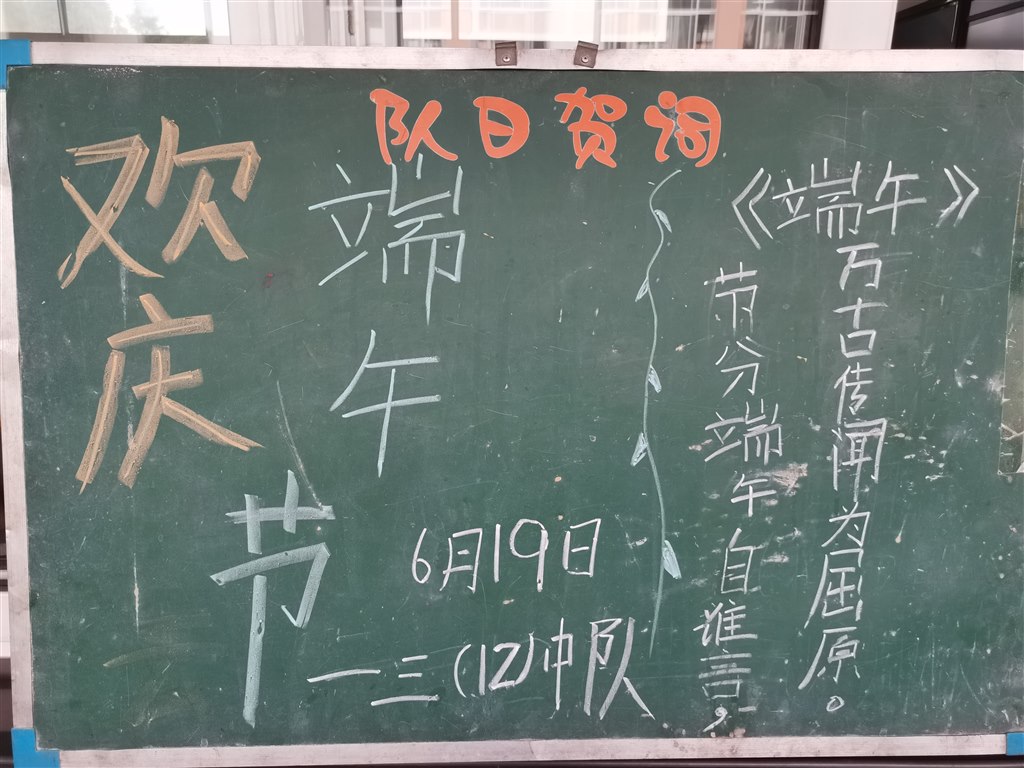 队日贺词
欢庆
端午
节
6月19日
一三(12)中队
《端午》
节分端午自谁言，
万古传闻为屈原。